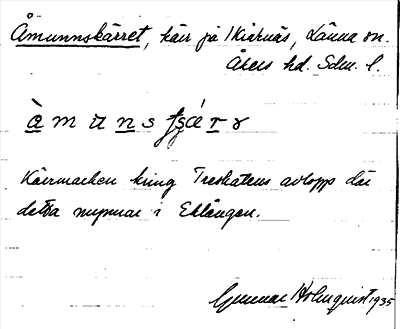 Åmunnskärret, kärr på Kiärnäs, Länna sn.
Åkers hd. Sdm. l.
Kärrmarken kring Treskatens avlopp där
detta mynnar i Eklången.
Gunnar Holmquist 1935